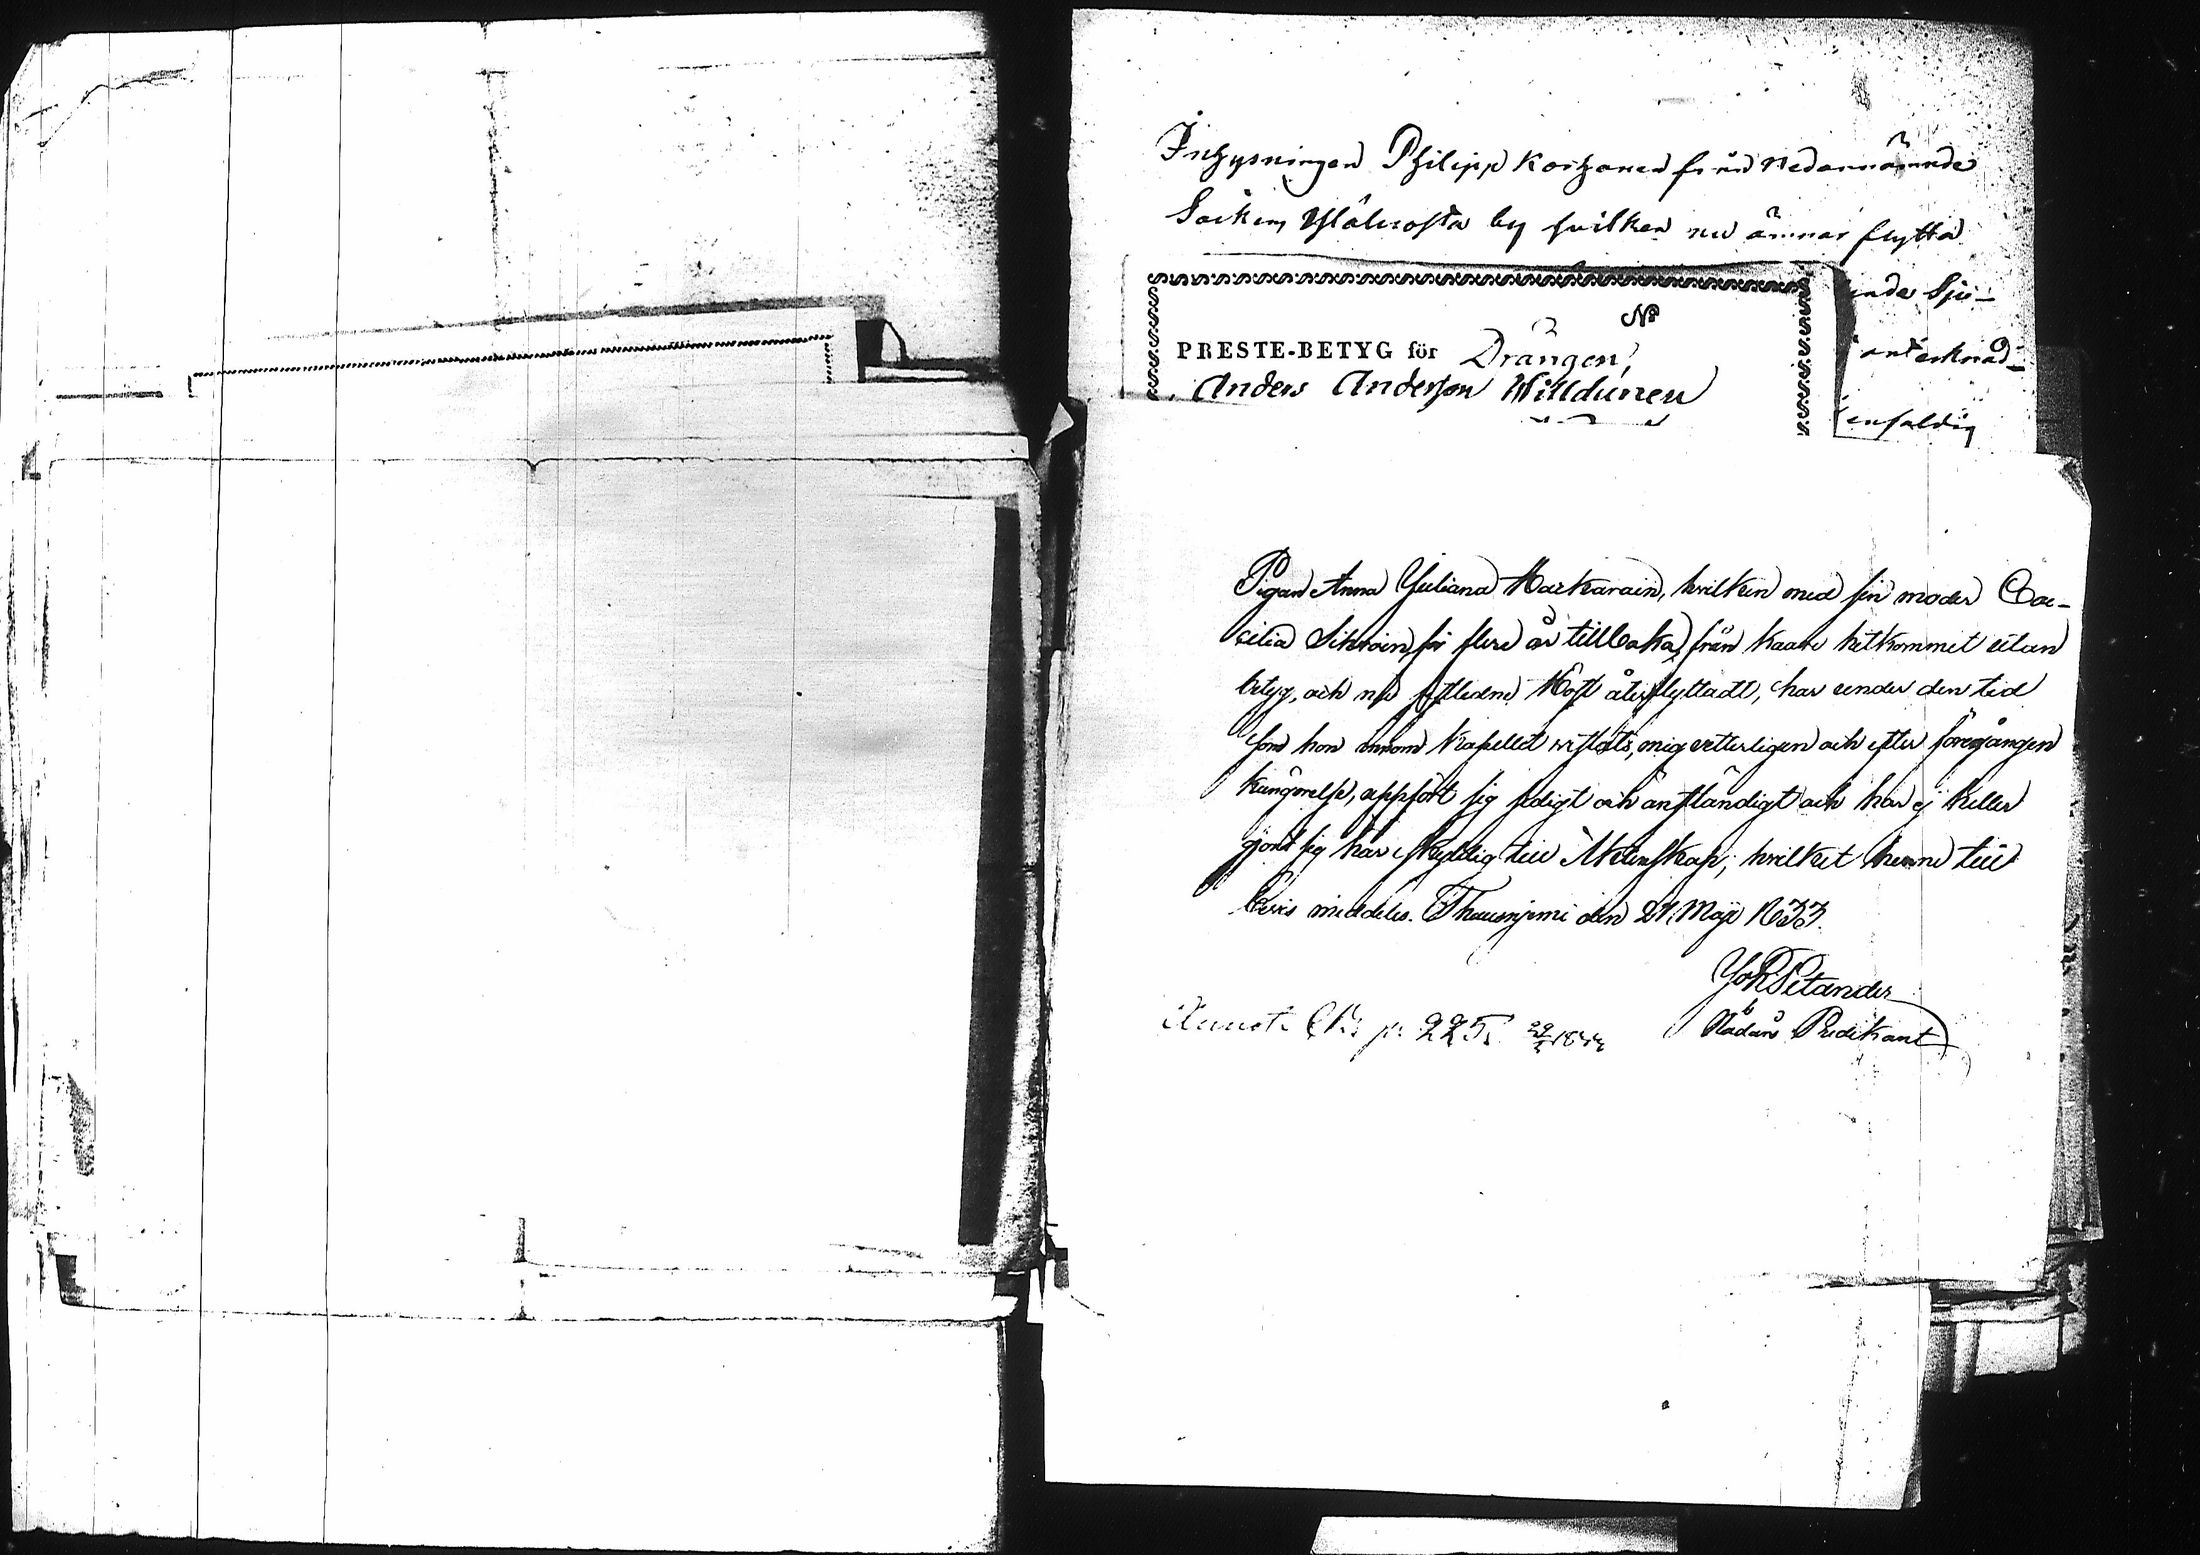 Inhysningen Philipp Korhonen från nedannämnde
Socken, Yläluosta by hvilken nu ämnar flytta
ande Sju-
anteknad
enfaldig
No
PRESTE-BETYG för Drängen,
Anders Anderson Willdunen
Pigan Anna Juliana Markarain, hvilken med sin moder Cae-
cilia Sikroin för flere år tillbaka från Kaavi hitkommit utan
betyg, och nu sistledne Höst återflyttadt, har under den tid
som hon innom Kapellet vistats, mig vetterligen och efter föregången
kungörelse, uppfört sig sedigt och anständigt och har ej heller
gjort sig här skyldig till Äktenskap, hvilket henne till
bevis meddeles. Thuusnjemi den 21 Maji 1833.
Joh Petander
Nådårs Predikant
Annot. p. 225.